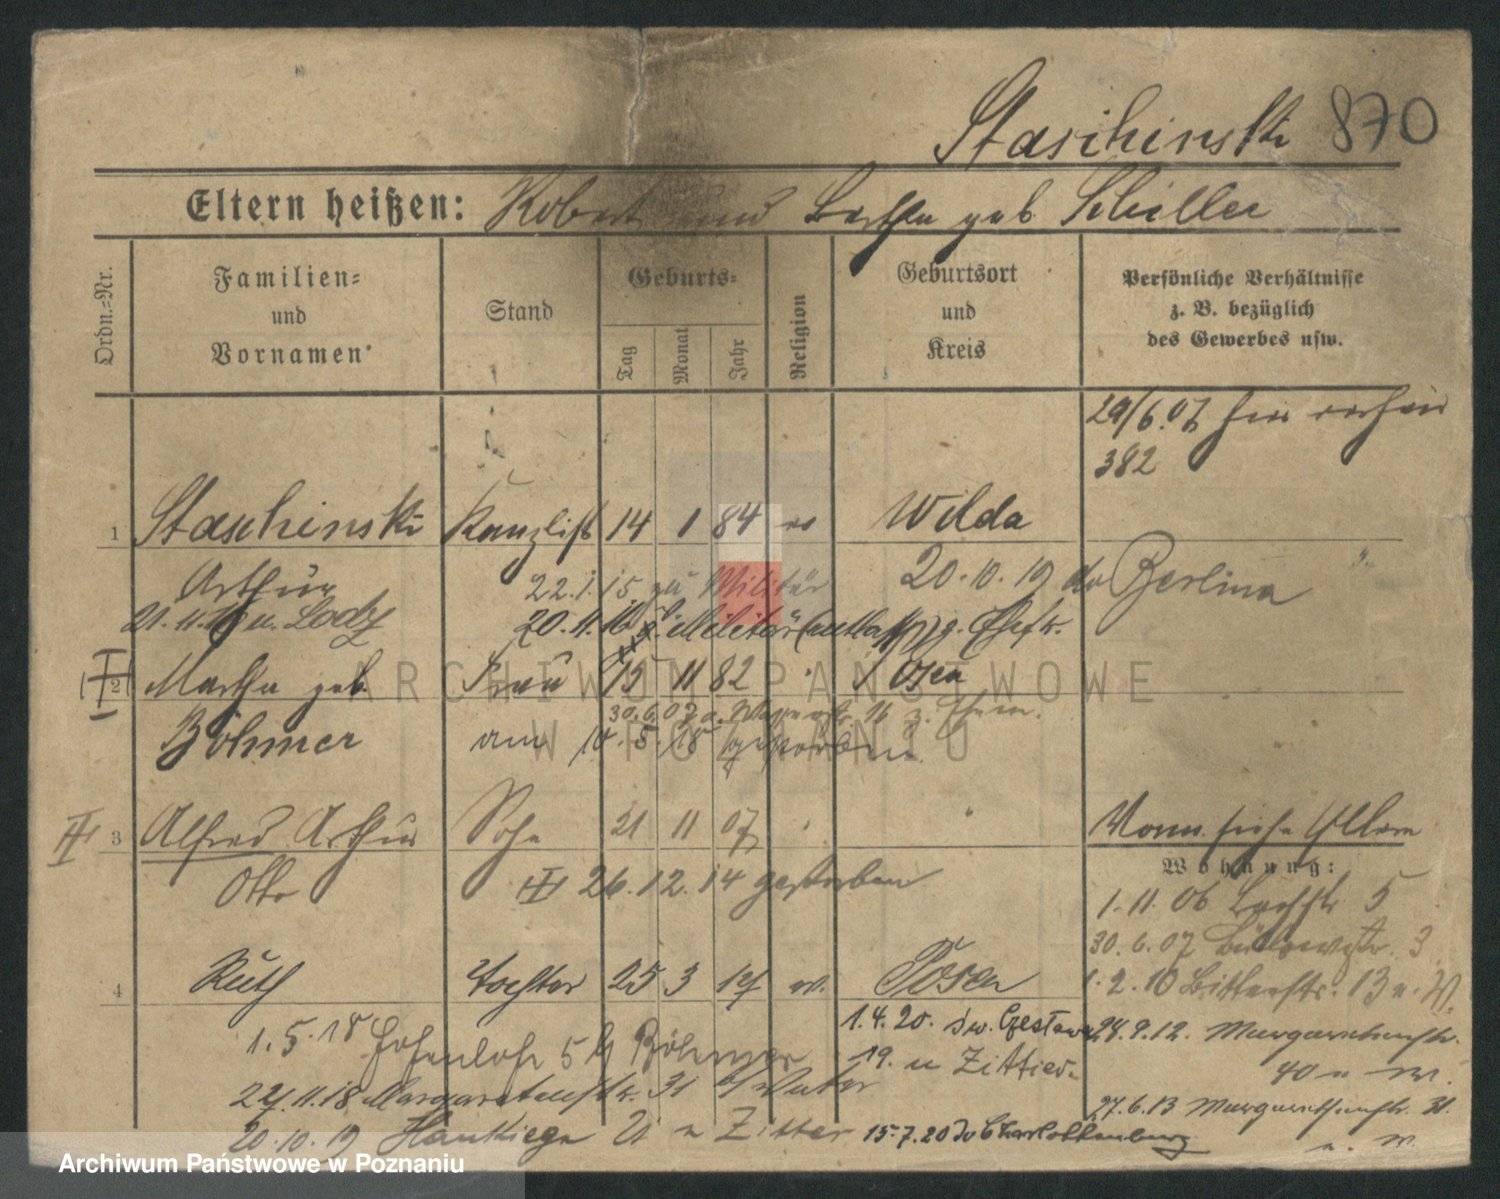 Staschinski 870
Eltern heißen: Robert und Bertha geb Schiller
Ordn.-Nr.
Familien-
und
Vornamen
Stand
Geburts-
Tag
Monat
Jahr
Religion
Geburtsort
und
Kreis
Persönliche Verhältnisse
z. B. bezüglich
des Gewerbes usw.
29/6.07 hier
382
1 Staschinski Kanzlist 14 1 84 ev Wilda
Arthur 22.1.15. zu Militär 20.10.19 do Berlina
21.11.18 n. Lodz 20.11.18 v. Militär
2 Martha geb. Frau 15 11 82 Posen
30.6.07
Böhmer am 10.5.15 gestorben
3 Alfred Arthur Sohn 21 11 07
Otto 26.12.14 gestorben
Wohnung:
1.11.06 5
30.6.07 Bülowstr. 3
4 Ruth Tochter 25 3 17 ev. Posen
1.2.10 Bitterstr. 13 n. W.
1.5.18 Hohenlohe 5 b/ Böhmer
1.4.20. Św. Czesława
19. u Zittier.
28.9.12. Margarethenstr.
40 n W.
22.11.18 Margaretenstr. 31 b/ Vater
27.6.13 Margarethenstr. 31.
n. W.
20.10.19 Hankiego 21 u Zitter
15.7.20 do Charlottenburg
ARCHIWUM PAŃSTWOWE
W POZNANIU
Archiwum Państwowe w Poznaniu